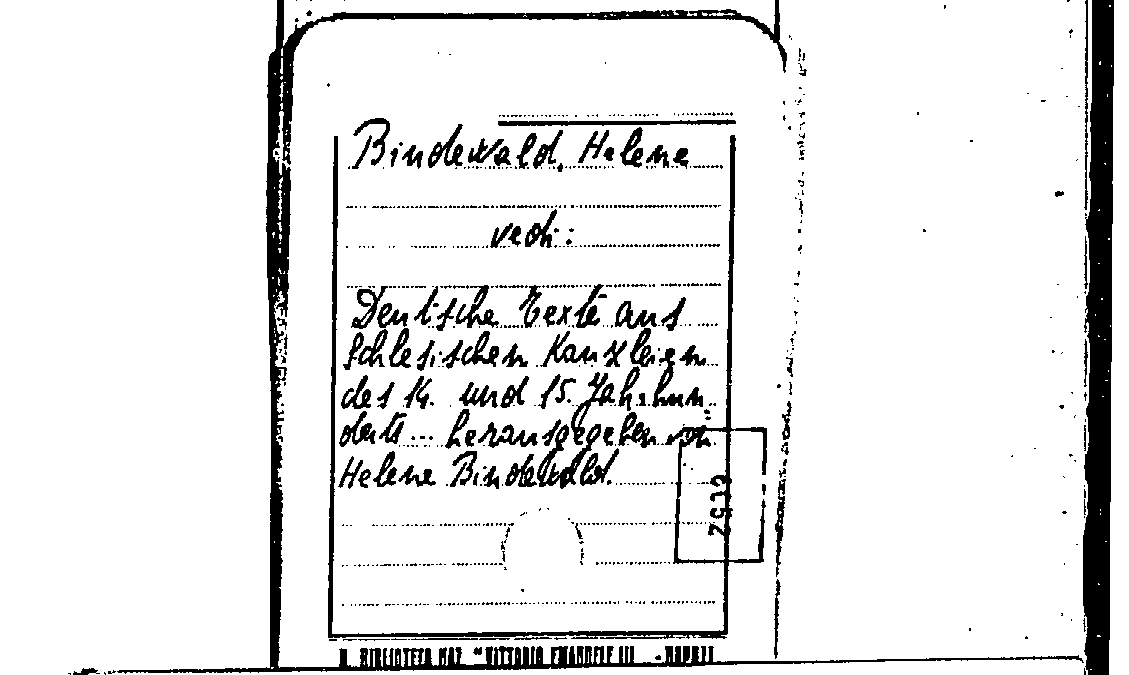 Bindewald, Helene
vedi:
Deutsche Texte aus
schlesischen Kanzleien
des 14. und 15. Jahrhun-
derts ... herausgegeben von
Helene Bindewald.
BIBLIOTECA NAZ. "VITTORIO EMANUELE III" - NAPOLI